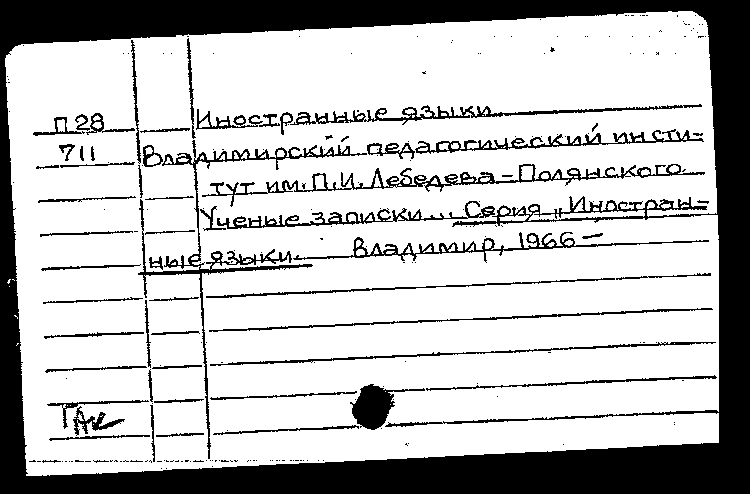 П28 Иностранные языки
711 Владимирский педагогический инсти-
тут им. П.И. Лебедева-Полянского.
Ученые записки... Серия „Иностран-
ные языки. Владимир, 1966 —